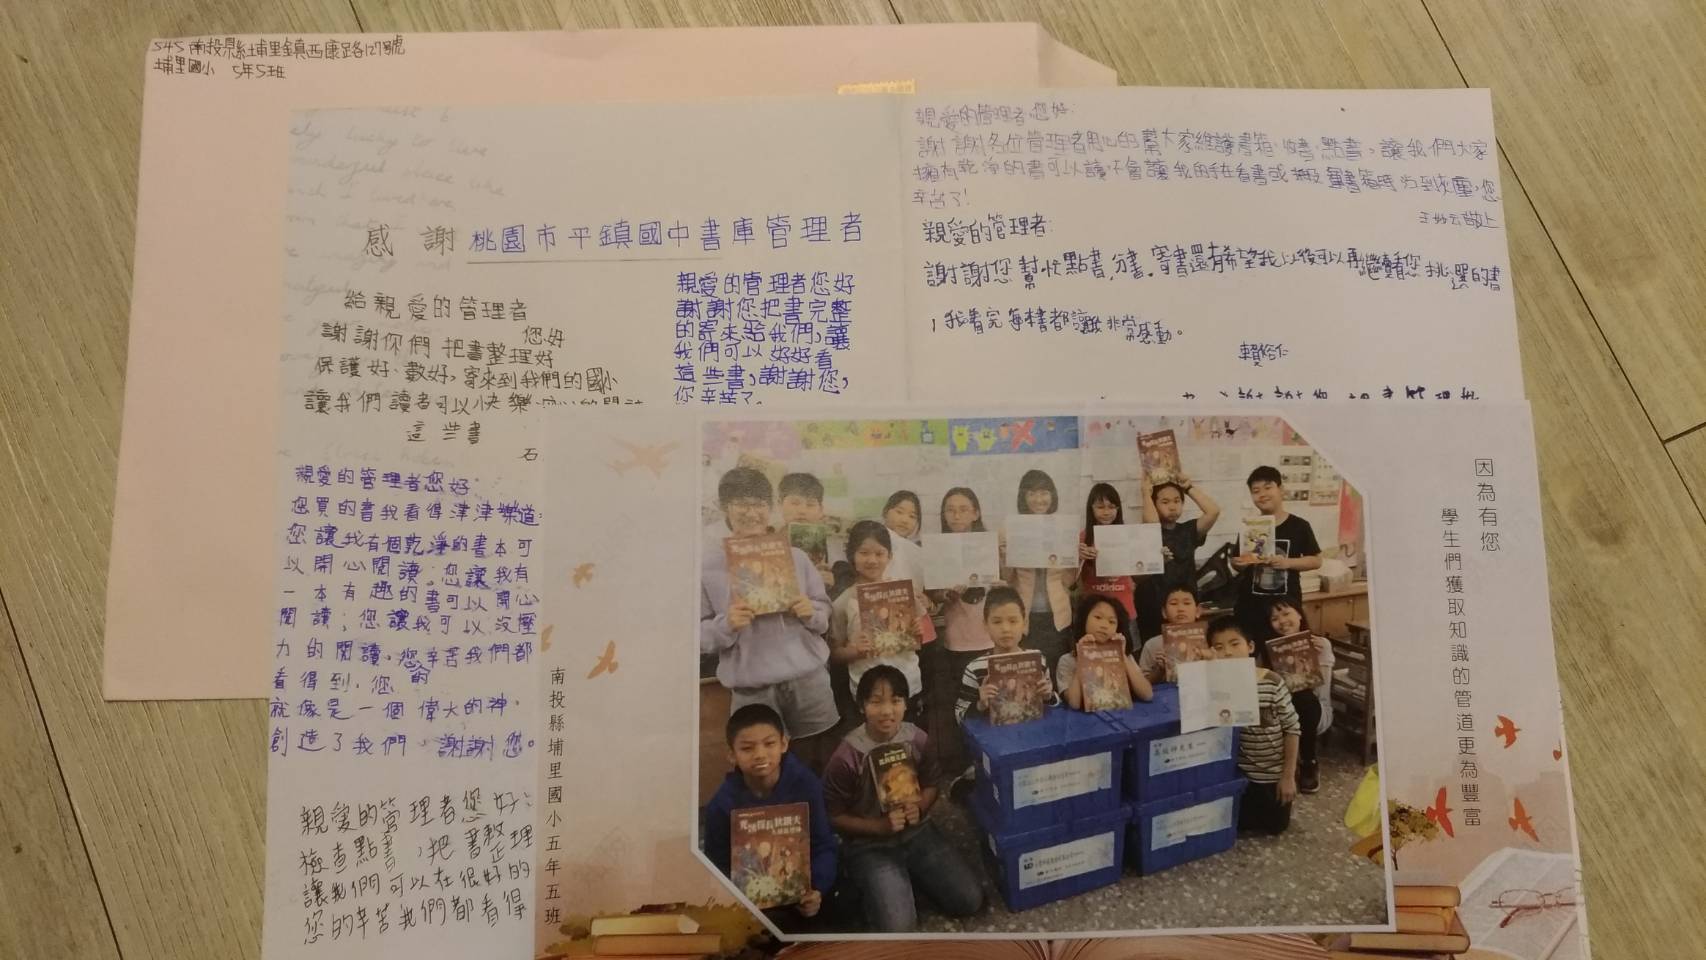 545 南投縣埔里鎮西康路127號
埔里國小 5年5班
感謝 桃園市平鎮國中書庫管理者
給親愛的管理者
您好
謝謝你們 把書整理好
保護好、數好,寄來到我們的國小
讓我們讀者可以快樂
這些書
石
親愛的管理者您好
謝謝您把書完整
的寄來給我們,讓
我們可以好好看
這些書,謝謝您,
您辛苦了。
親愛的管理者您好:
謝謝各位管理者用心的幫大家維護書箱、收書、點書,讓我們大家
擁有乾淨的書可以讀,不會讓我的手在看書或搬書箱時沾到灰塵,您
辛苦了!
敬上
親愛的管理者:
謝謝您幫忙點書,分書。寄書還有希望我以後可以再繼續看您挑選的書
,我看完每本書都讓我非常感動。
謝謝您 把書整理好
親愛的管理者您好.
您買的書我看得津津樂道:
您讓我有個乾淨的書本可
以開心閱讀;您讓我有
一本有趣的書可以開心
閱讀;您讓我可以沒壓
力的閱讀,您的辛苦我們都
看得到,您
就像是一個偉大的神,
創造了我們,謝謝您。
親愛的管理者您好:
檢查點書,把書整理
讓我們可以在很好的
您的辛苦我們都看得
南投縣埔里國小五年五班
因為有您
學生們獲取知識的管道更為豐富